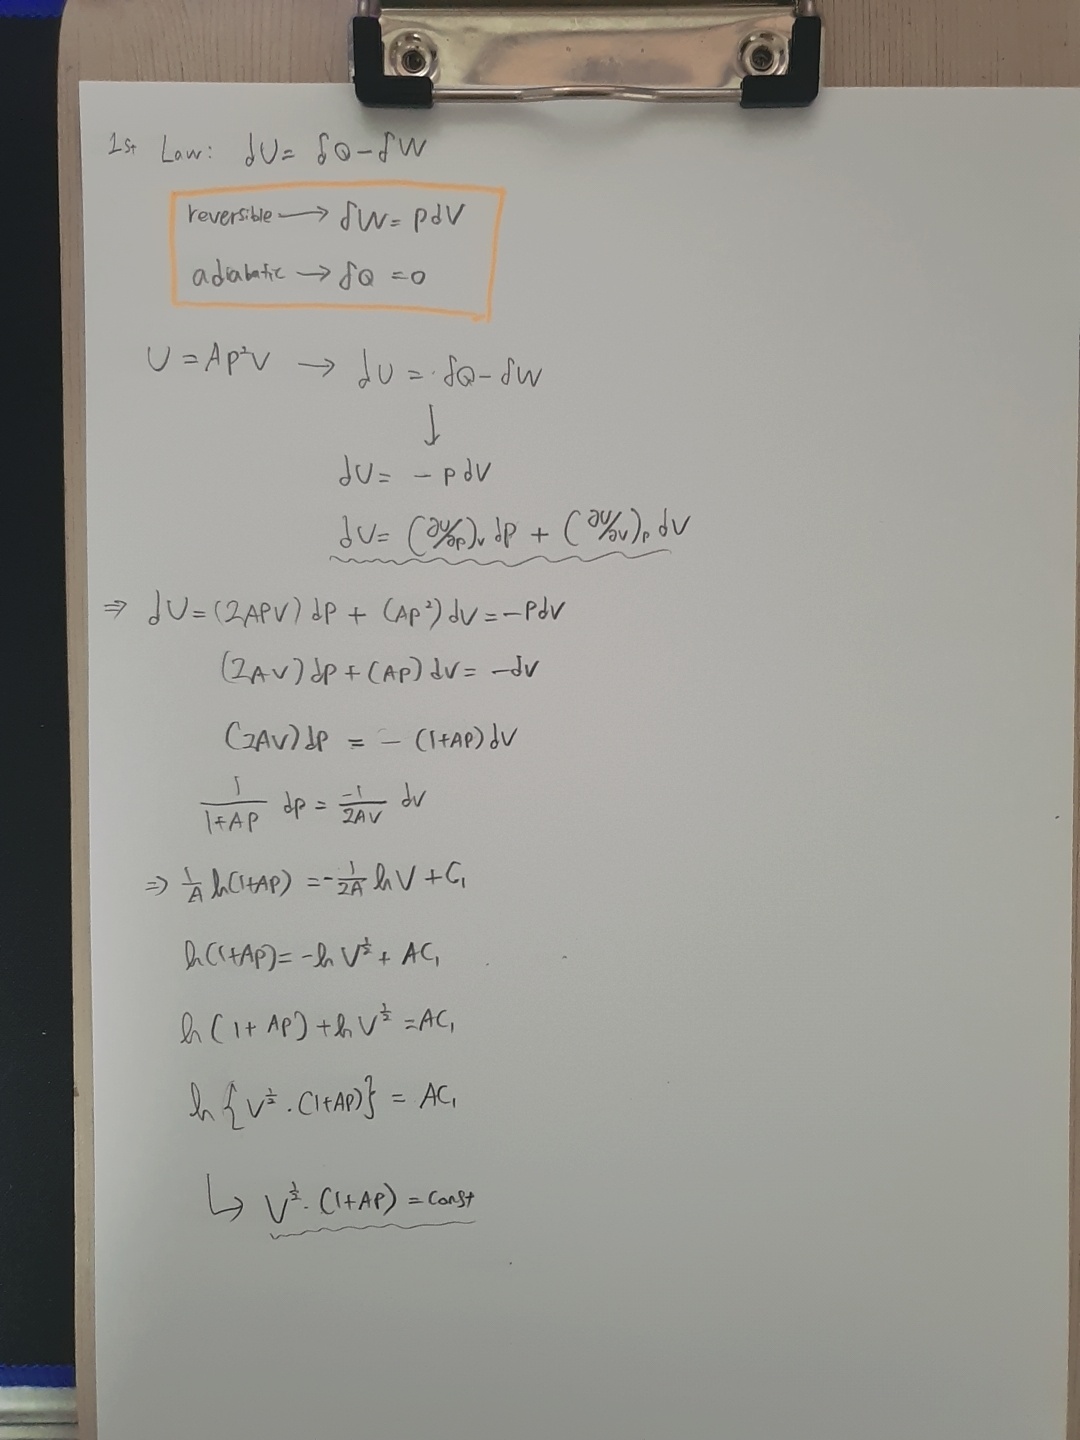 1st Law: dU = δQ - δW
reversible → δW = PdV
adiabatic → δQ = 0
U = AP²V → dU = δQ - δW
↓
dU = - PdV
dU = (∂U/∂P)ᵥ dP + (∂U/∂V)ₚ dV
⇒ dU = (2APV) dP + (AP²) dV = -PdV
(2AV) dP + (AP) dV = -dV
(2AV) dP = - (1+AP) dV
1/(1+AP) dP = -1/(2AV) dV
⇒ 1/A ln(1+AP) = -1/(2A) ln V + C₁
ln(1+AP) = -ln V^½ + AC₁
ln(1+AP) + ln V^½ = AC₁
ln{V^½ · (1+AP)} = AC₁
↳ V^½ · (1+AP) = const